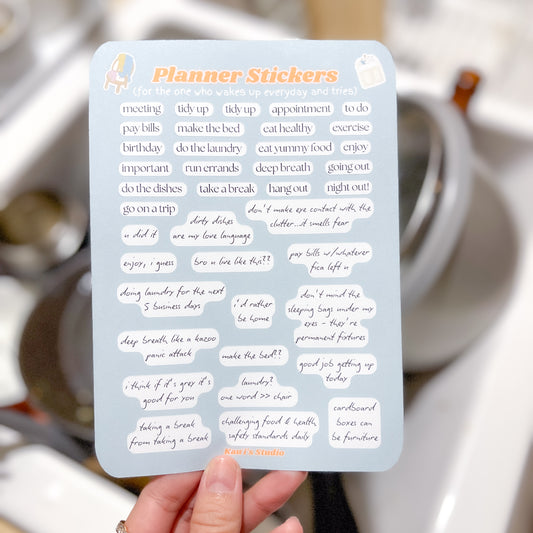 Planner Stickers
(for the one who wakes up everyday and tries)
meeting tidy up tidy up appointment to do
pay bills make the bed eat healthy exercise
birthday do the laundry eat yummy food enjoy
important run errands deep breath going out
do the dishes take a break hang out night out!
go on a trip
don't make eye contact with the
clutter...it smells fear
dirty dishes
are my love language
u did it
enjoy, i guess
bro u live like this??
pay bills w/whatever
fica left u
doing laundry for the next
5 business days
i'd rather
be home
don't mind the
sleeping bags under my
eyes - they're
permanent fixtures
deep breath like a kazoo
panic attack
make the bed??
good job getting up
today
i think if it's grey it's
good for you
laundry?
one word >> chair
taking a break
from taking a break
challenging food & health
safety standards daily
cardboard
boxes can
be furniture
Kawi's Studio